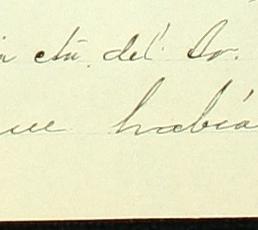 cta. del Sr.
que había